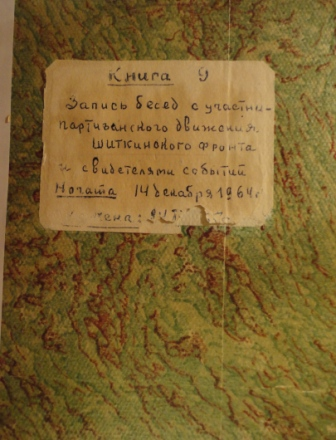 Книга 9
Запись бесед с участни-
партизанского движения
Шиткинского фронта
и свидетелями событий
Начата 14 декабря 1964 г.